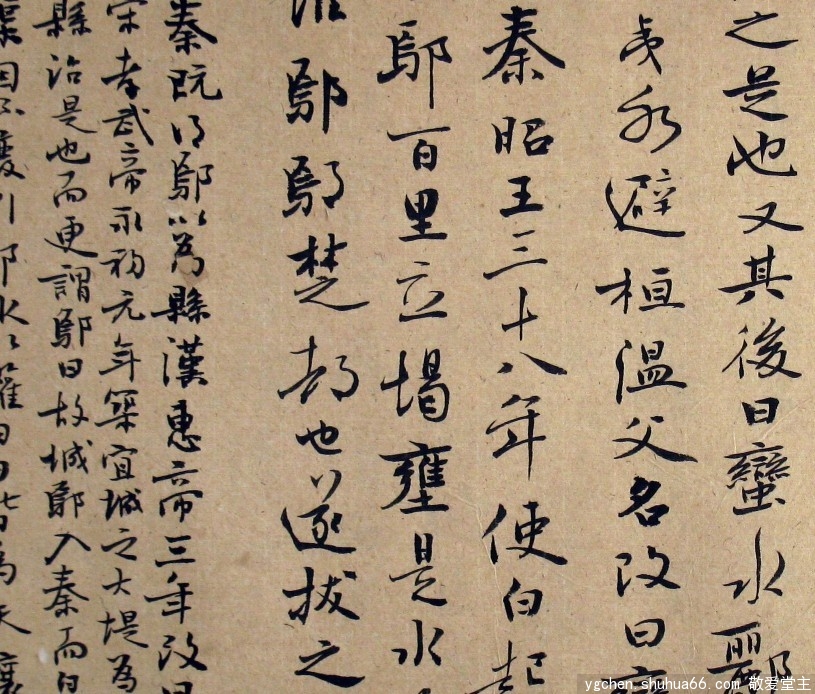 之是也又其後曰蠻水酈
夷水避桓溫父名改曰
秦昭王三十八年使白起
鄢百里立堨壅是水
鄢鄢楚都也遂拔之
秦既得鄢以為縣漢惠帝三年改曰
宋孝武帝永初元年築宜城之大堤為
縣治是也而更謂鄢曰故城鄢入秦而曰
ygchen.shuhua66.com 敬爱堂主